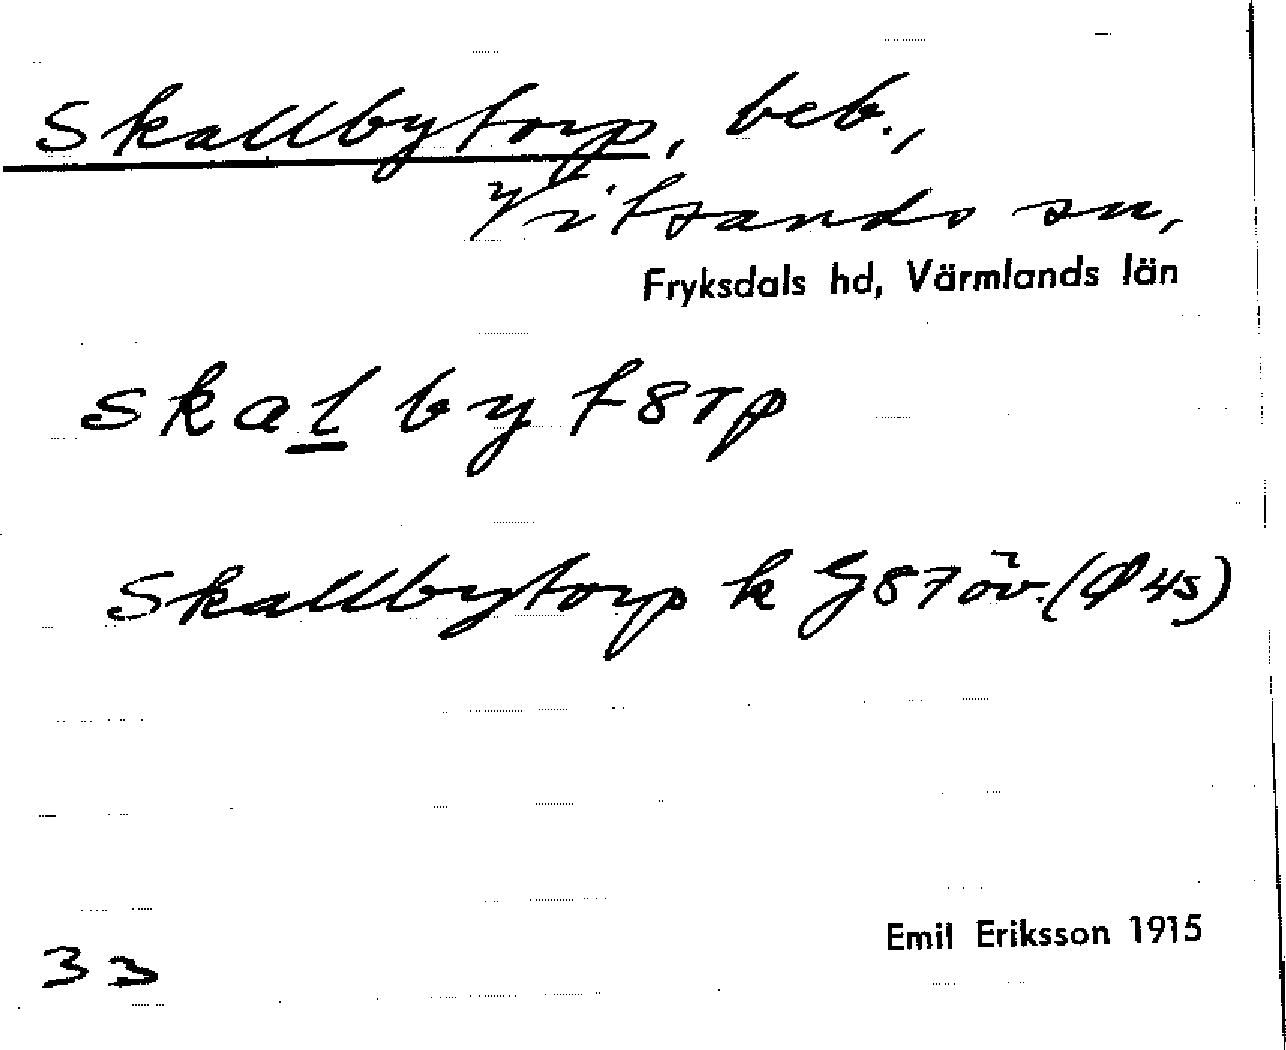 Skallbytorp, beb.,
Vitsands sn,
Fryksdals hd, Värmlands län
skal by t8rp
Skallbytorp k G87öv. (Ø4s)
Emil Eriksson 1915
33